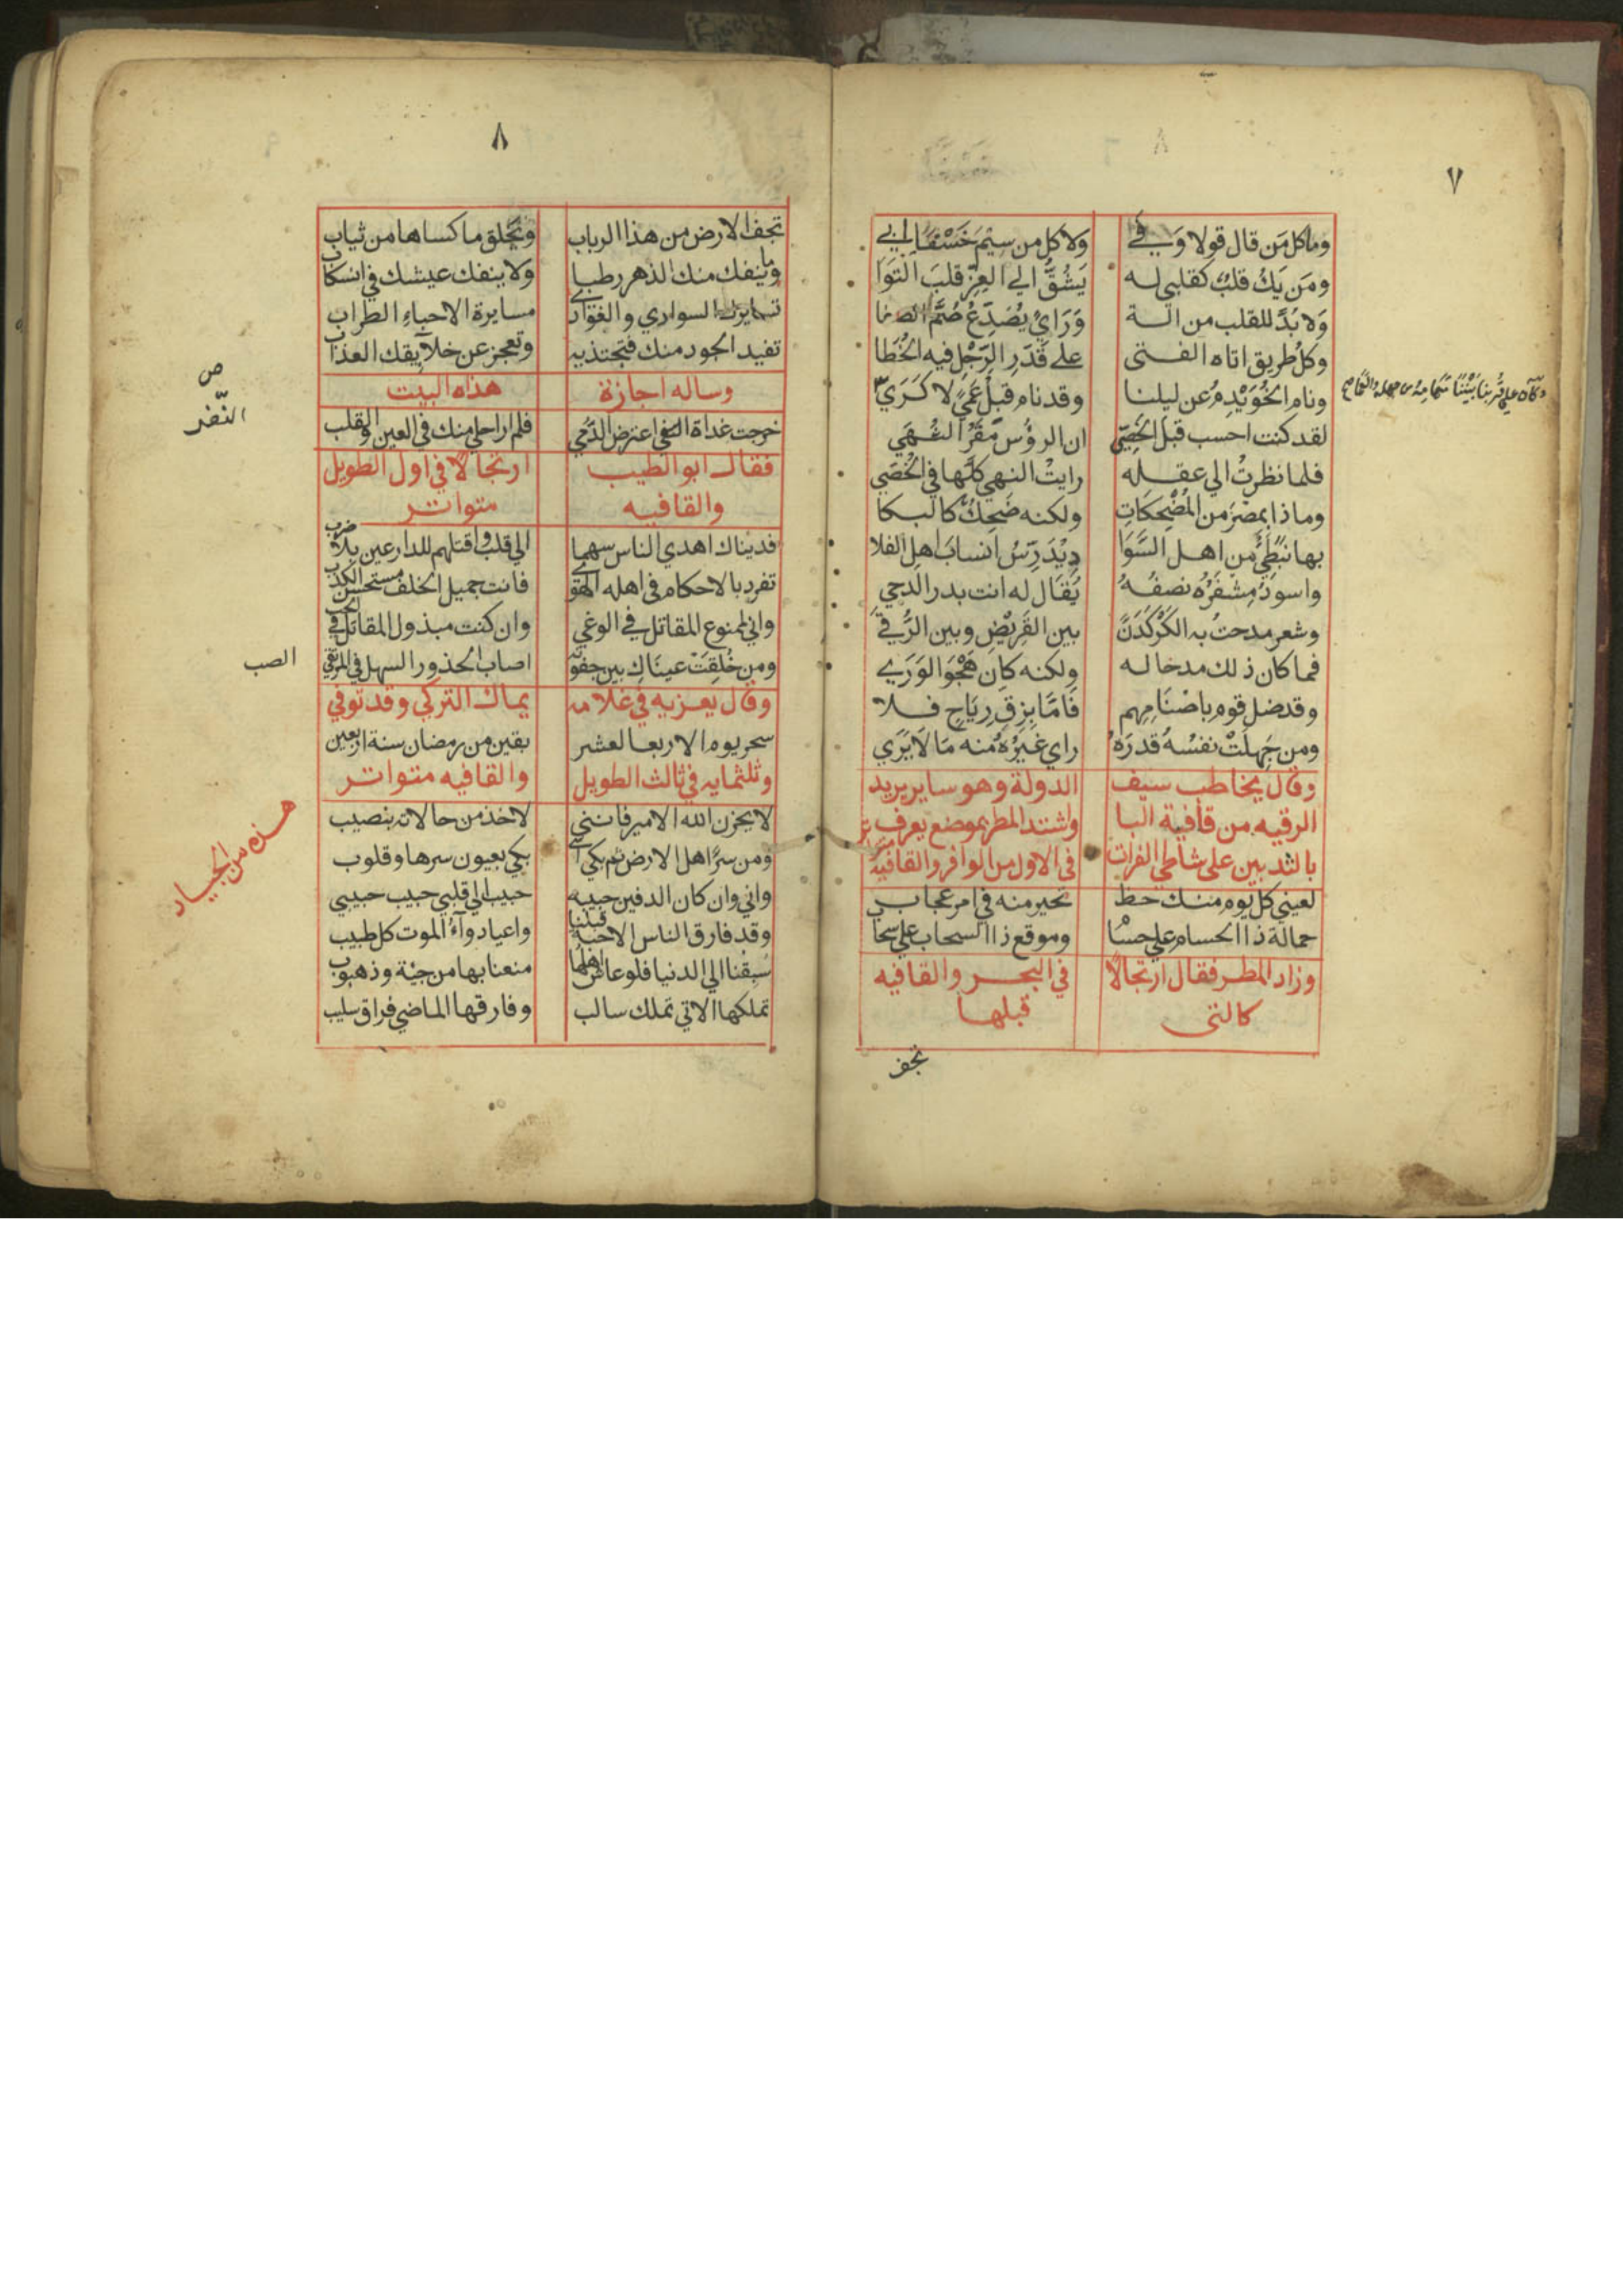 ٧
وما كل من قال قولا وَفي ولا كل من سِيْمَ خَسْفًا ابي
ومَن يَكُ قلبٌ كقلبي له يَشُقُّ الي العِزّ قلبَ التوَا
وَلا بُدَّ للقلب من الة وَرَايٍ يُصَدِّعُ صُمَّ الصفا
وكلُ طريق اتاه الفتى على قَدَرِ الرِّجْلِ فيه الخُطَا
ونام الخُوَيْدِمُ عن ليلنا وقد نام قبلُ عَمًي لا كَرَي
لقد كنت احسب قبل الخَصِيّ ان الرؤسَ مَقَرُّ النُهَي
فلما نظرتُ الي عقله رايتُ النهي كلَّها في الخُصَي
وماذا بمِصْرَ من المُضْحِكَاتِ ولكنه ضَحِكٌ كالبكا
بها نَبَطِيٌّ من اهل السَّوَا دِ يُدَرِّسُ انسابَ اهل الفلا
واسودُ مِشفَرُهُ نصفُهُ يُقَال له انت بدر الدجي
وشعر مدحتُ به الكَرْكَدَنَّ بين القَرِيْضِ وبين الرُّقي
فما كان ذلك مدحا له ولكنه كان هَجْوَ الوَرَي
وقد ضل قوم باصْنَامِهم فَامَّا بِزِقِّ رِيَاحٍ فلا
ومن جَهِلَتْ نفسُهُ قدرَهُ راي غيرُهُ منه مَا لَا يَرَي
وقال يخاطب سيف الدولة وهو ساير يريد
الرقيه من قافية البا واشتد المطر بموضع يعرف
بالثديين على شاطي الفرات في الاول من الوافر والقافية
لعيني كل يوم منك حظ تحير منه في امر عجاب
حمالة ذا الحسام علي حسَا وموقع ذا السحاب علي سحا
وزاد المطر فقال ارتجالًا في البحر والقافيه
كالتى قبلها
تجف
٨
تجف الارض من هذا الرباب وتخلق ما كساها من ثياب
وما ينفك منك الدهر رطبا ولا ينفك عيشك في انسكاب
تسايرك السواري والغوادي مسايرة الاحباءِ الطراب
تفيد الجود منك فتجتذيه وتعجز عن خلايقك العذاب
وساله اجازة هذاه البيت
خرجت غداة النفر اعترض الدُّمي فلم ار احلي منك في العين والقلب
ص
النّفر
فقال ابو الطيب ارتجالًا في اول الطويل
والقافيه متواتر
فديناك اهدي الناس سهما الي قلب واقتلهم للدارعين بلا ضرب
تفرد بالاحكام في اهله الهوي فانت جميل الخلف مستحسن الكذب
واني لممنوع المقاتل في الوغي وان كنت مبذول المقاتل في الحب
ومن خُلِقَتْ عيناك بين جفونه اصاب الحذور السهل في المرتقي
الصب
وقال يعزيه في غلامه يماك التركي وقد توفي
سحر يوم الاربعا لعشر بقين من رمضان سنة اربعين
وثلثمايه في ثالث الطويل والقافيه متواتر
لا يحزن الله الامير فانني لاخذ من حالاته بنصيب
ومن سرَّ اهل الارض ثم بكي اسي بكي بعيون سرها وقلوب
واني وان كان الدفين حبيبه حبيب الي قلبي حبيب حبيبي
هذه من الجياد
وقد فارق الناس الاحبة قبلنا واعياد وآءُ الموت كل طبيب
سُبِقنا الي الدنيا فلو عاش اهلها منعنا بها من جيْة وذهوب
تملكها الاتي تملك سالب وفارقها الماضي فراق سليب